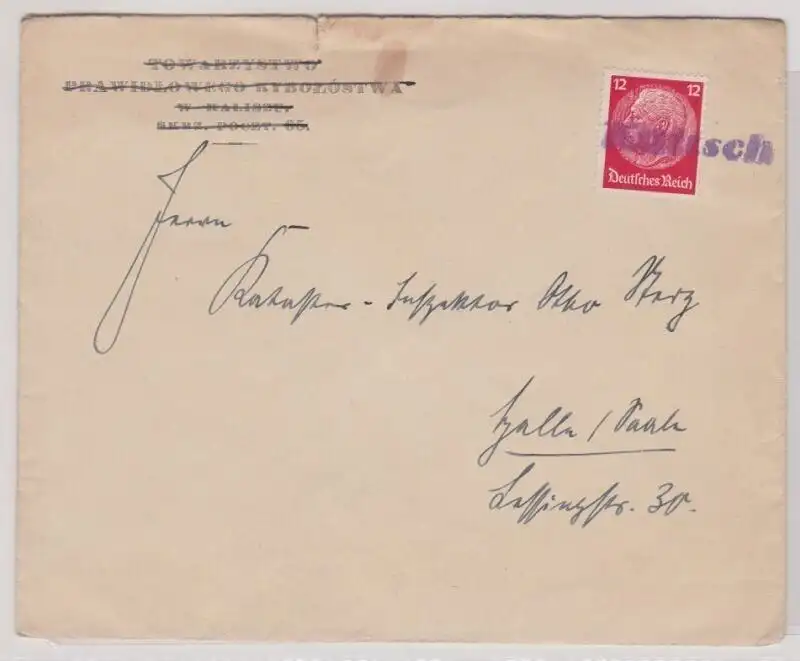 TOWARZYSTWO
PRAWIDŁOWEGO RYBOŁÓSTWA
W KALISZU.
SKRZ. POCZT. 65.
12 12
Deutsches Reich
Herrn
Kataster-Inspektor Otto
Halle / Saale
Lessingstr. 30.